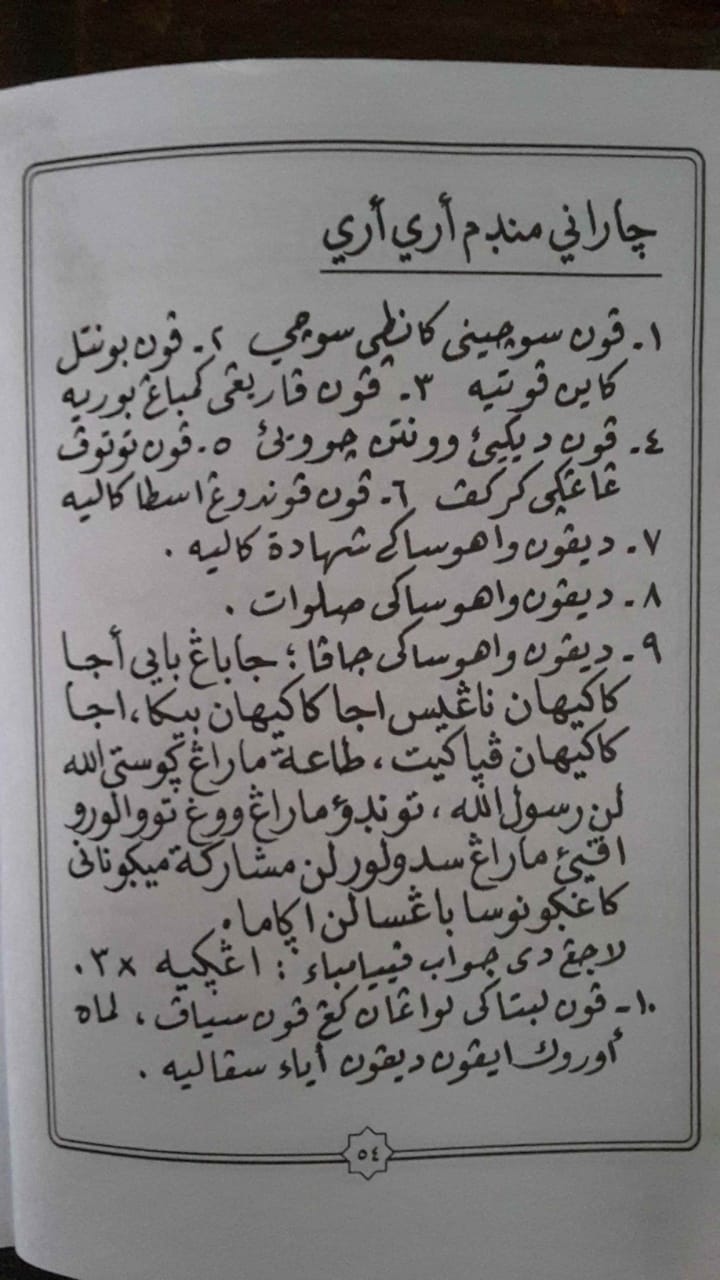 چاراني مندم أري أري
١- ڤون سوچيني كانطي سوچي ٢- ڤون بونتل
كاين ڤوتيه ٣- ڤون ڤاريڠي كمباڠ بوريه
٤- ڤون ديكيئ وونتن چوويئ ٥- ڤون توتوڤ
ڠاڠكي كركف ٦- ڤون ڤوندوڠ اسطا كاليه
٧- ديڤون واهوساكي شهادة كاليه .
٨- ديڤون واهوساكي صلوات .
٩- ديڤون واهوساكي جاڤا : جاباڠ بايي أجا
كاكيهان ناڠيس اجا كاكيهان بيكا، اجا
كاكيهان ڤياكيت، طاعة ماراڠ ڮوستي الله
لن رسول الله، توندؤ ماراڠ ووڠ تووالورو
اڤيئ ماراڠ سدولور لن مشاركة ميكوناني
كاڠڮو نوسا باڠسا لن اڮاما.
لاجڠ دي جواب ڤييامباء : اڠڮيه ×٣.
١٠- ڤون لبتاكي لواڠان كڠ ڤون سياڤ، لماه
أوروك ايڤون ديڤون أياء سڤاليه .
٥٤